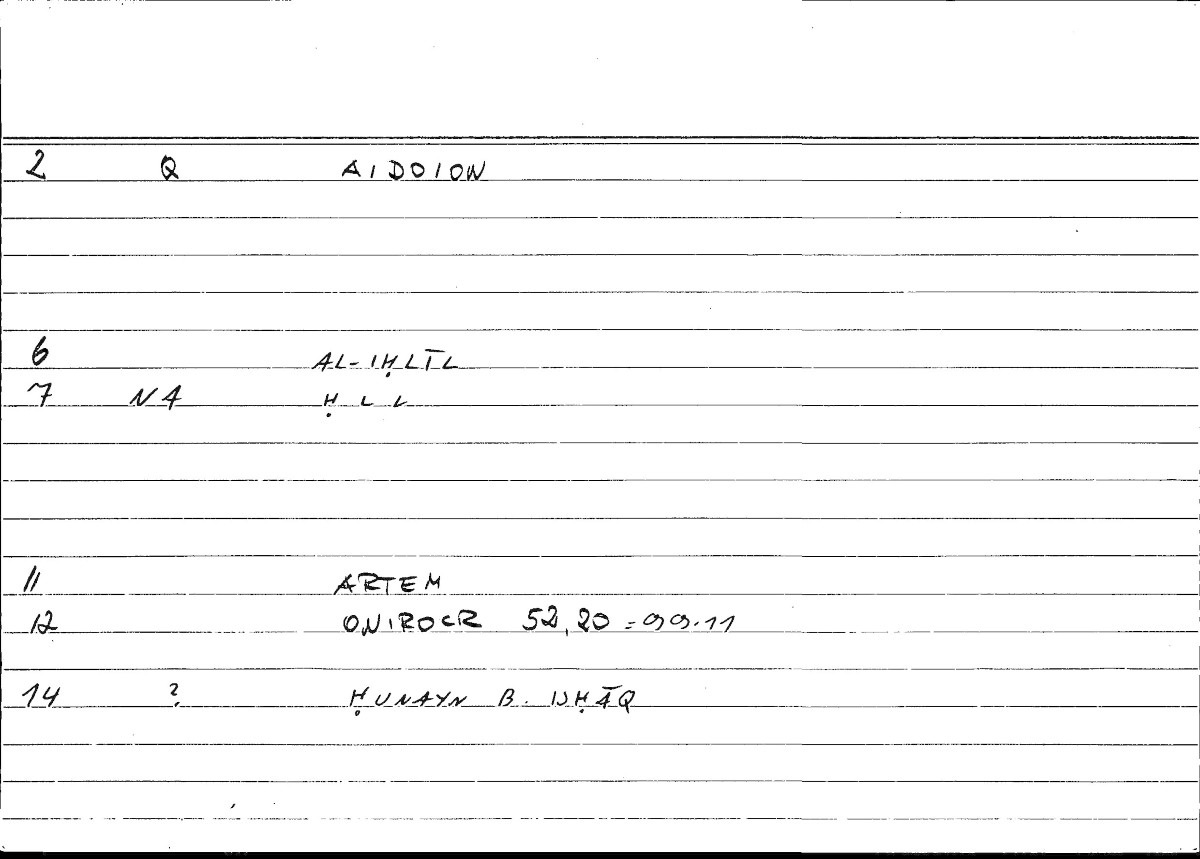 2 Q AIDOION
6 AL-IḤLĪL
7 NA ḤLL
11 ARTEM
12 ONIROCR 52,20 = 99.11
14 ? ḤUNAYN B. ISḤĀQ